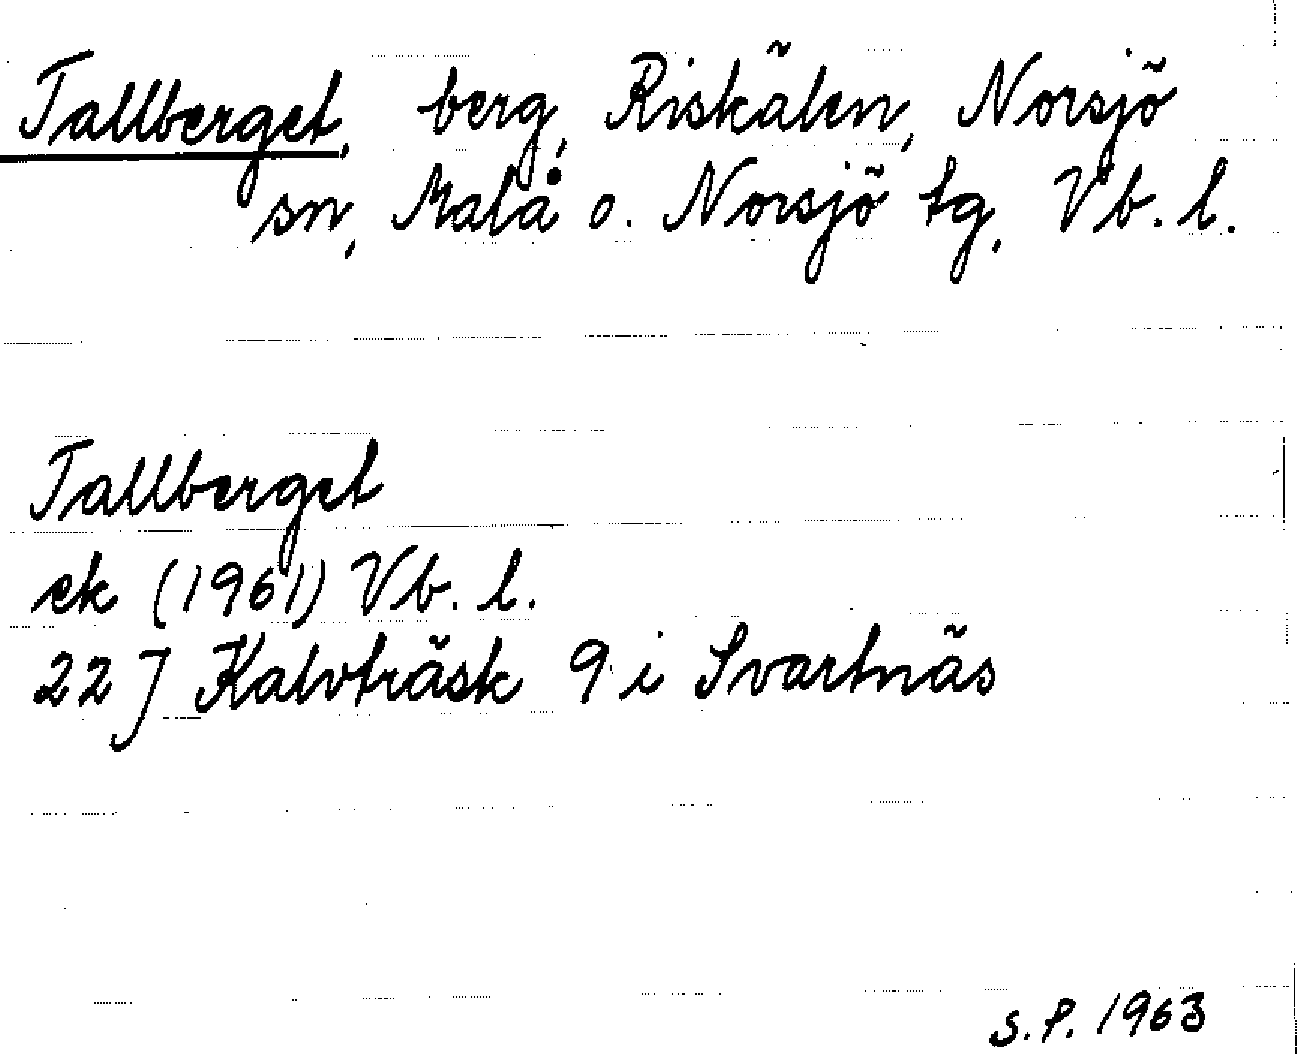 Tallberget, berg, Riskälen, Norsjö
sn, Malå o. Norsjö tg, Vb. l.
Tallberget
ek (1961) Vb. l.
22 J Kalvträsk 9 i Svartnäs
S.P. 1963